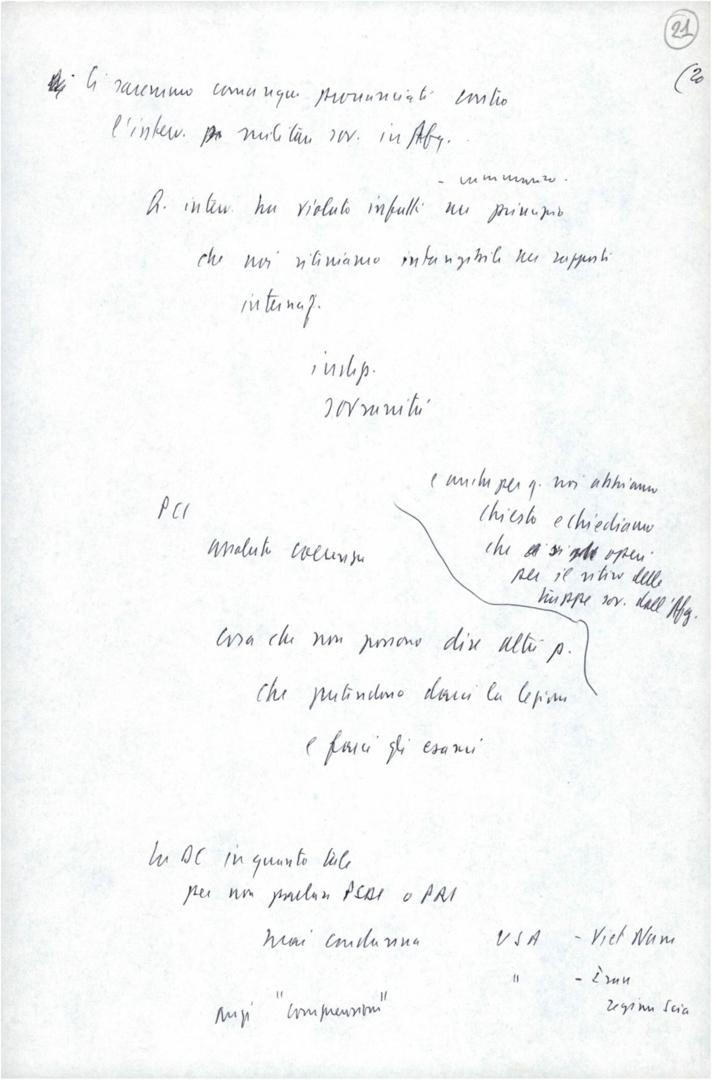 21
(20
Ci saremmo comunque pronunciati contro
l'interv. militare sov. in Afg.
Q. interv. ha violato infatti un principio
che noi riteniamo intangibile nei rapporti
internaz.
indip.
sovranità
e anche per q. noi abbiamo
chiesto e chiediamo
che si operi
per il ritiro delle
truppe sov. dall'Afg.
PCI
assoluta coerenza
Cosa che non possono dire altri p.
che pretendono darci la lezione
e farci gli esami
La DC in quanto tale
per non parlare PSDI o PRI
mai condanna USA - Viet Nam
" - Iran
regime Scia
anzi "comprensioni"